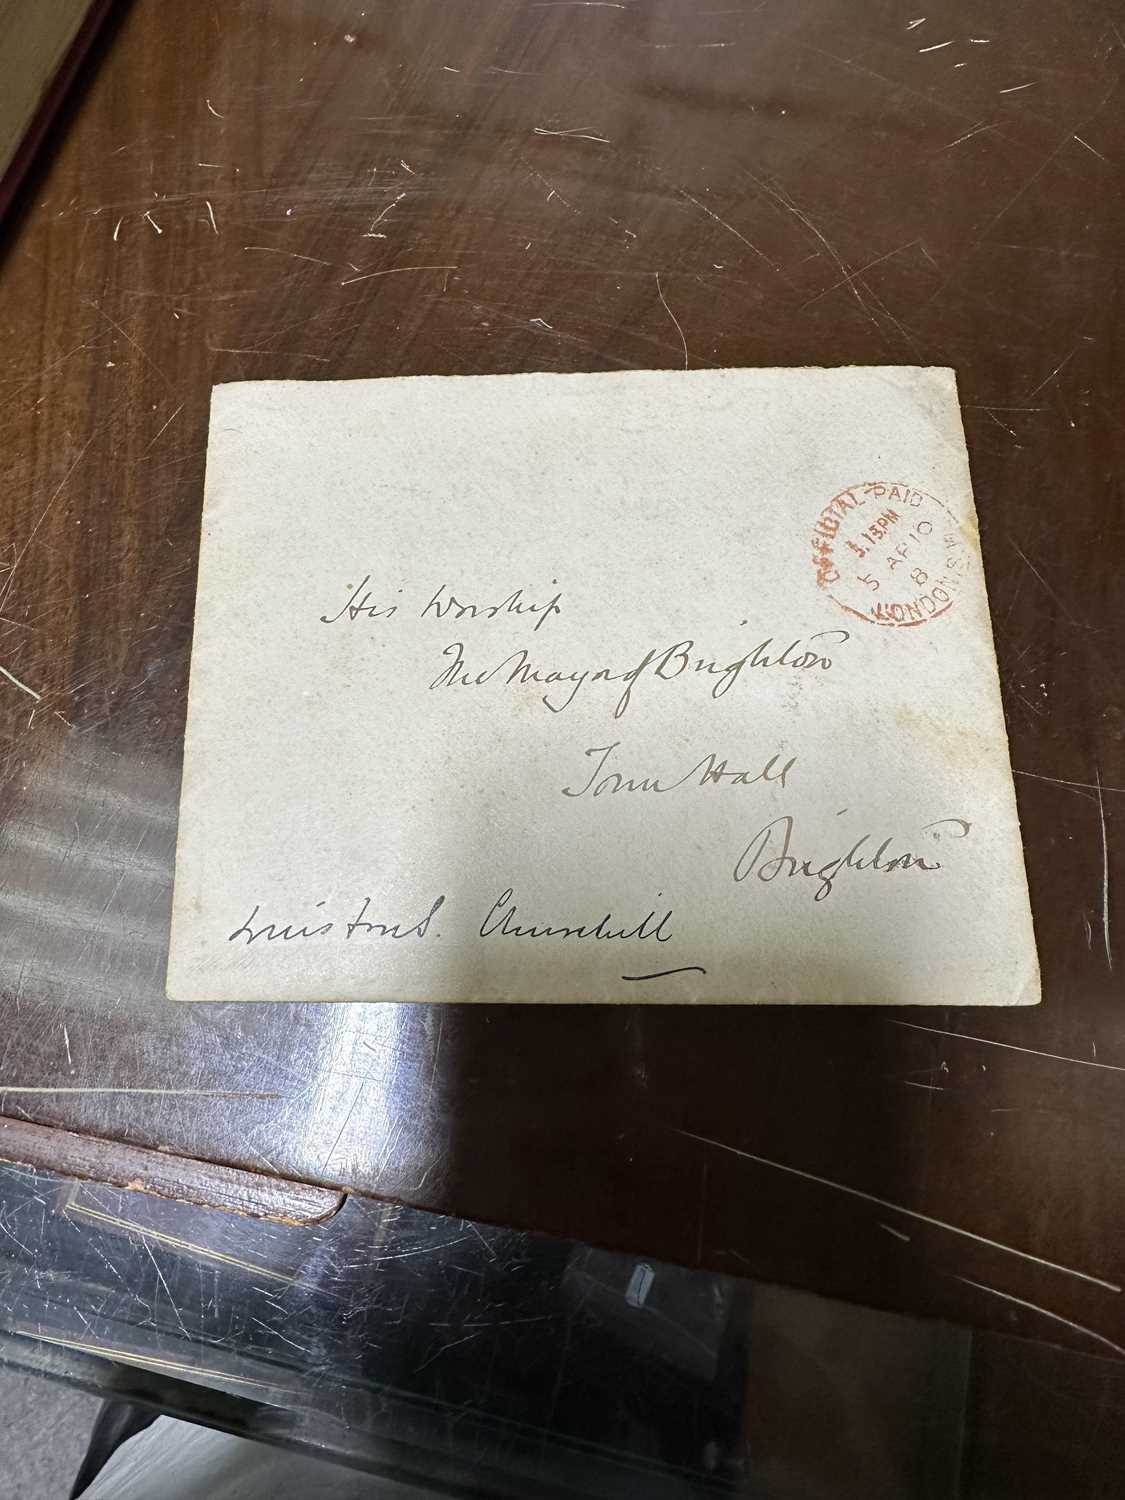 OFFICIAL PAID
3.15PM
5 AP 10
8
LONDON S.W
His Worship
The Mayor of Brighton
Town Hall
Brighton
Winston S. Churchill